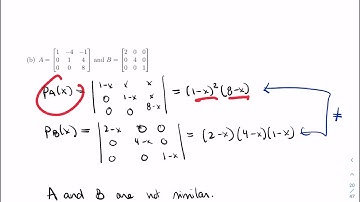 (b) A = [1 -4 -1; 0 1 4; 0 0 8] and B = [2 0 0; 0 4 0; 0 0 1]
P_A(x) = |1-x x x; 0 1-x x; 0 0 8-x| = (1-x)²(8-x)
≠
P_B(x) = |2-x 0 0; 0 4-x 0; 0 0 1-x| = (2-x)(4-x)(1-x)
A and B are not similar.
20
/
47